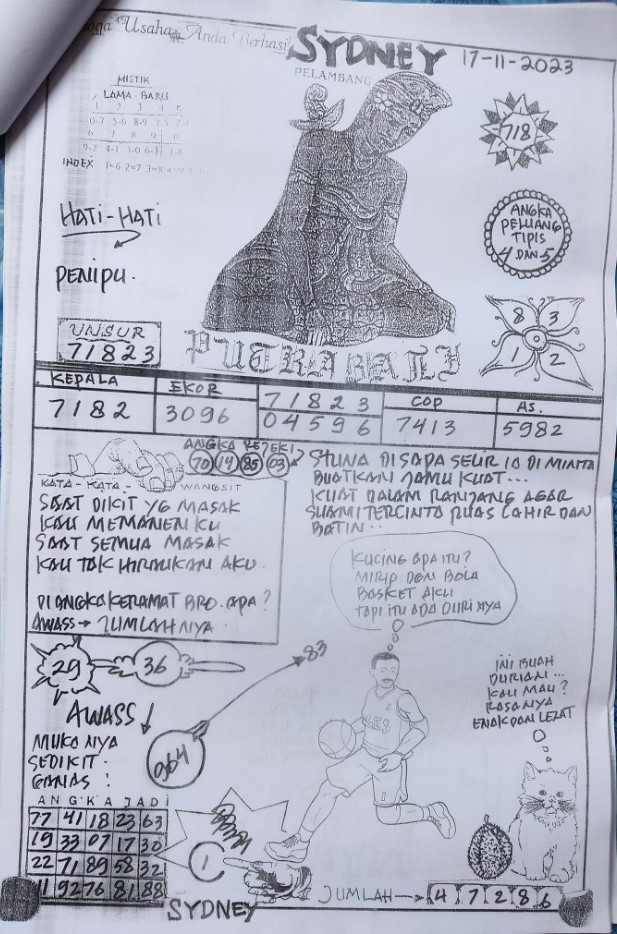 Usaha Anda Berhasil
SYDNEY
17-11-2023
PELAMBANG
MISTIK
LAMA - BARU
1 2 3 4 5
6 7 8 9
INDEX 1=6 2=7 3=8
7/8
HATI-HATI
PENIPU.
ANGKA
PELUANG
TIPIS
4 DAN 5
8 3
1 2
UNSUR
71823
PUTRA BALI
KEPALA EKOR 71823 COP AS.
7182 3096 04596 7413 5982
ANGKA REJEKI
70 14 85 03
KATA - KATA - WANGSIT
SAAT DIKIT YG MASAK
KAU MEMANEN KU
SAAT SEMUA MASAK
KAU TAK HIRAUKAN AKU.
DI ANGKA KERAMAT BRO. APA?
AWASS → JUMLAHNYA
DISAPA SELIR DI MINTA
BUATKAN JAMU KUAT...
KUAT DALAM RANJANG AGAR
SUAMI TERCINTA PUAS LAHIR DAN
BATIN..
KUCING APA ITU?
MIRIP DGN BOLA
BASKET AKU
TAPI ITU ADA DURI NYA
29 36
83
AWASS
964
MUKA NYA
SEDIKIT
GANAS!
INI BUAH
DURIAN...
KAU MAU?
RASANYA
ENAK DAN LEZAT
ANGKA JADI
77 41 18 23 63
19 33 07 17 30
22 71 89 58 32
11 92 76 81 88
1
SYDNEY
JUMLAH → 4 7 2 8 6